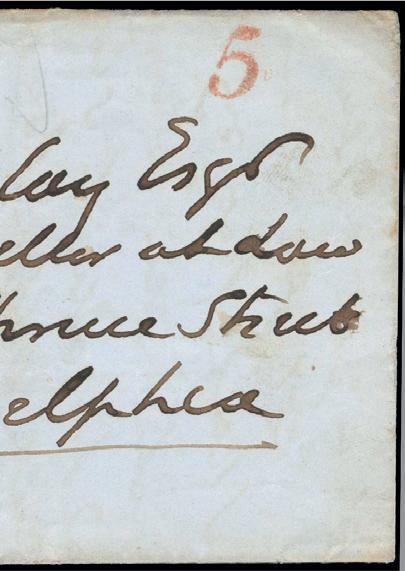 5
Cay Esqr
ellor at Law
pruce Street
elphia